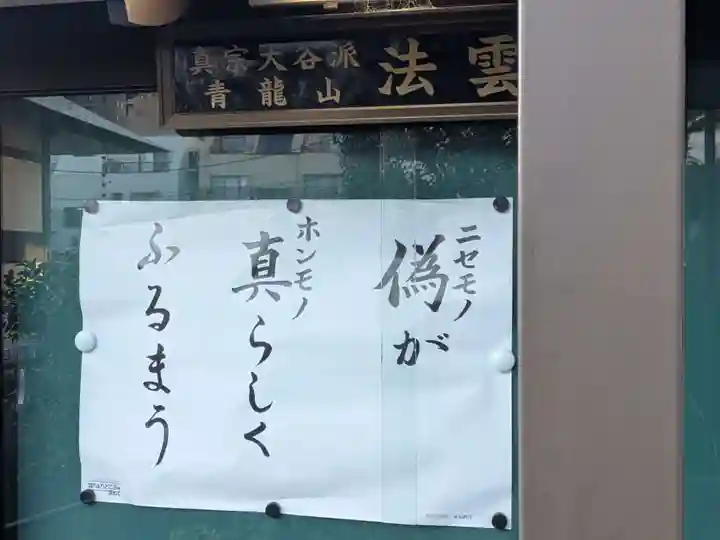 真宗大谷派
青龍山
法雲
偽が
ニセモノ
真らしく
ホンモノ
ふるまう